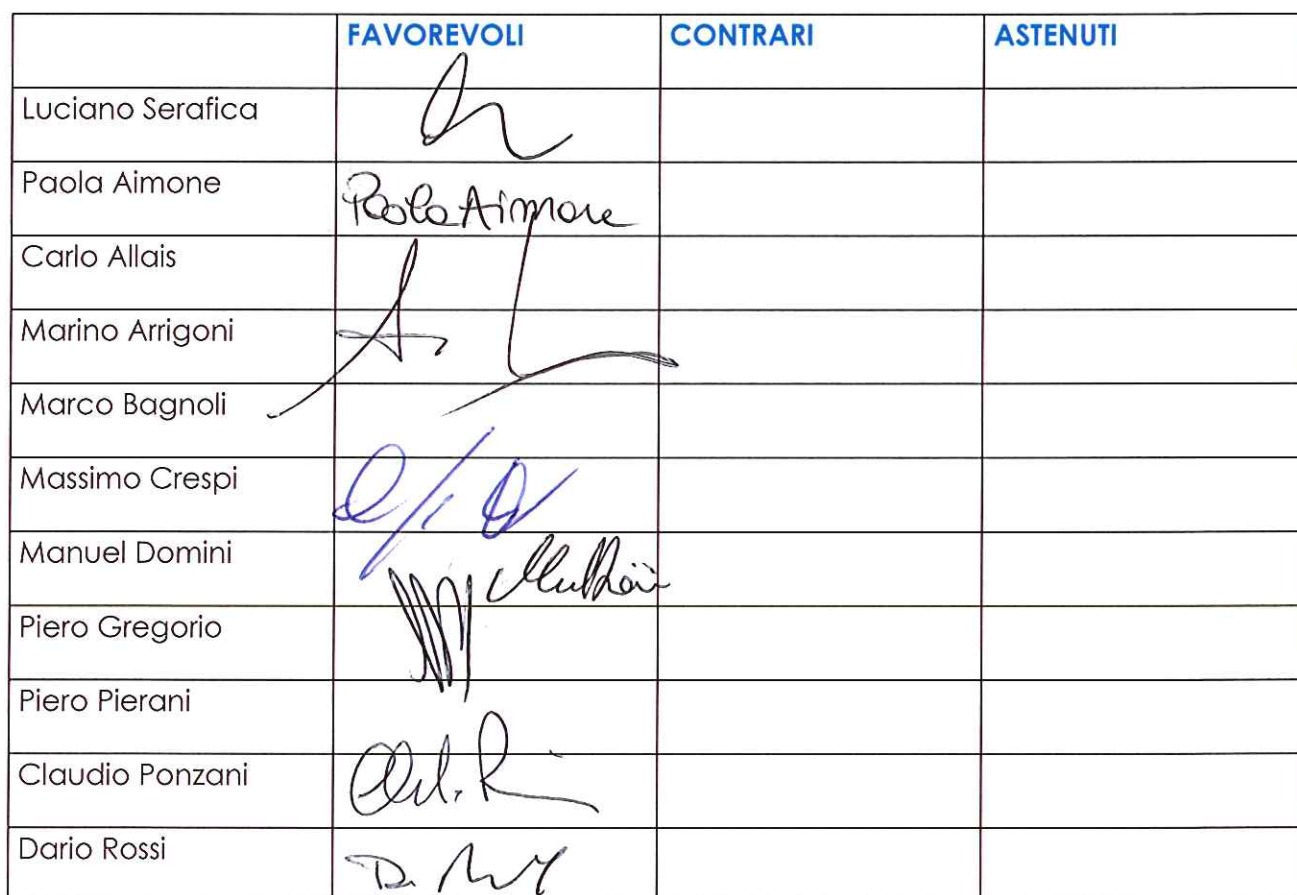 FAVOREVOLI CONTRARI ASTENUTI
Luciano Serafica
Paola Aimone Paola Aimone
Carlo Allais
Marino Arrigoni
Marco Bagnoli
Massimo Crespi
Manuel Domini
Piero Gregorio
Piero Pierani
Claudio Ponzani
Dario Rossi